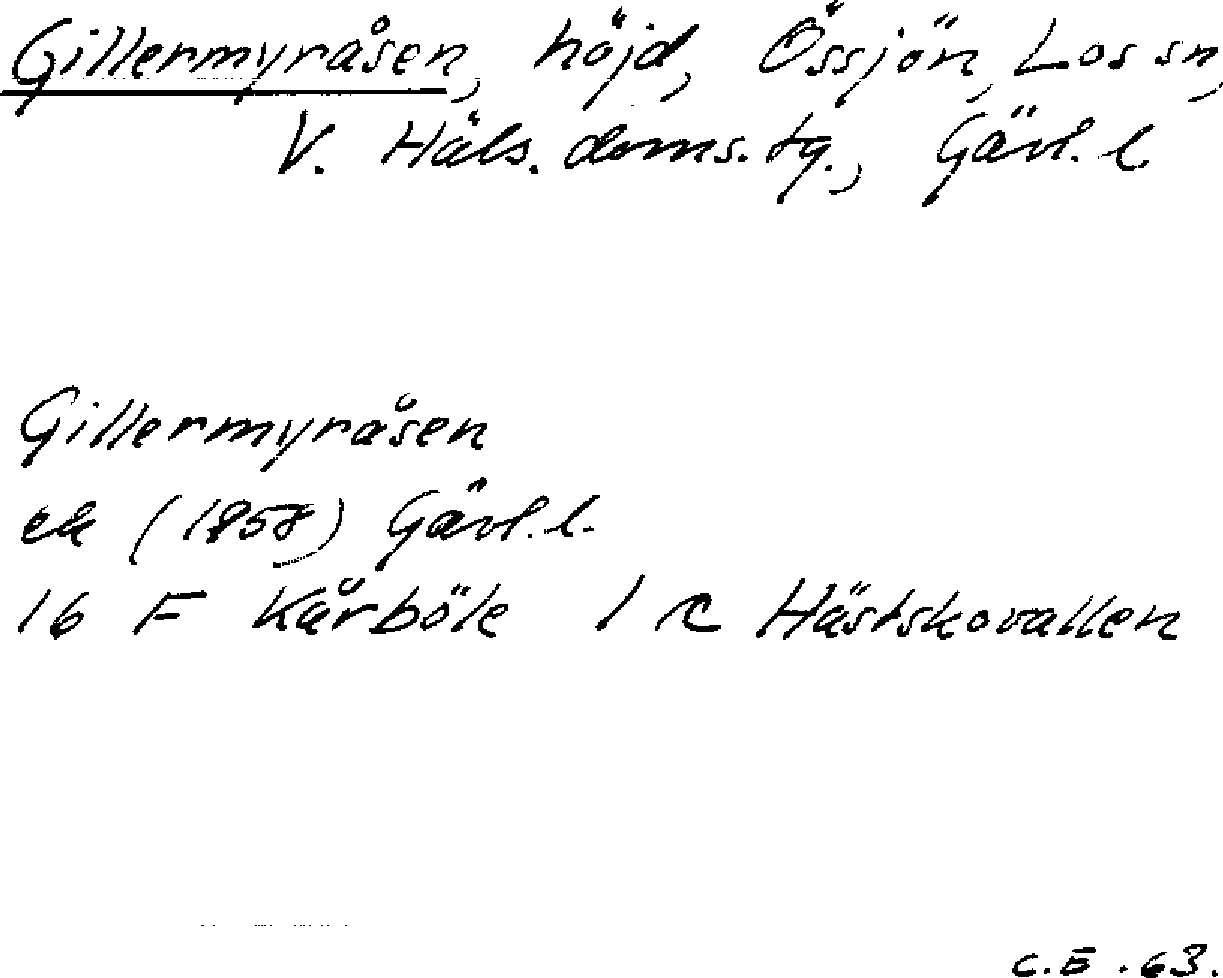 Gillermyråsen, höjd, Össjön, Los sn,
V. Häls. doms. tg., Gävl. l.
Gillermyråsen
ek (1958) Gävl. l.
16 F Kårböle 1 c Hästskovallen
C.E. 63.